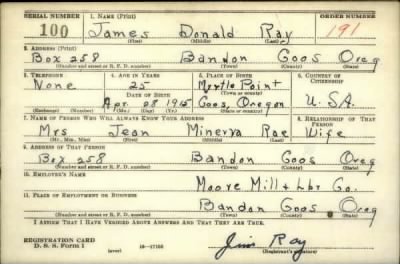 SERIAL NUMBER 1. NAME (Print) ORDER NUMBER
100 James Donald Ray 191
(First) (Middle) (Last)
2. ADDRESS (Print)
Box 258 Bandon Coos Oreg
(Number and street or R. F. D. number) (Town) (County) (State)
3. TELEPHONE 4. AGE IN YEARS 5. PLACE OF BIRTH 6. COUNTRY OF CITIZENSHIP
None 25 Myrtle Point
DATE OF BIRTH (Town or county)
Apr 08 1915 Coos, Oregon U.S.A.
(Exchange) (Number) (Mo.) (Day) (Yr.) (State or country)
7. NAME OF PERSON WHO WILL ALWAYS KNOW YOUR ADDRESS 8. RELATIONSHIP OF THAT PERSON
Mrs Jean Minerva Rae Wife
(Mr., Mrs., Miss) (First) (Middle) (Last)
9. ADDRESS OF THAT PERSON
Box 258 Bandon Coos Oreg
(Number and street or R. F. D. number) (Town) (County) (State)
10. EMPLOYER'S NAME
Moore Mill + Lbr Co.
11. PLACE OF EMPLOYMENT OR BUSINESS
Bandon Coos Oreg
(Number and street or R. F. D. number) (Town) (County) (State)
I AFFIRM THAT I HAVE VERIFIED ABOVE ANSWERS AND THAT THEY ARE TRUE.
REGISTRATION CARD
D. S. S. Form 1 (over) 16-17105 Jim Ray
(Registrant's signature)